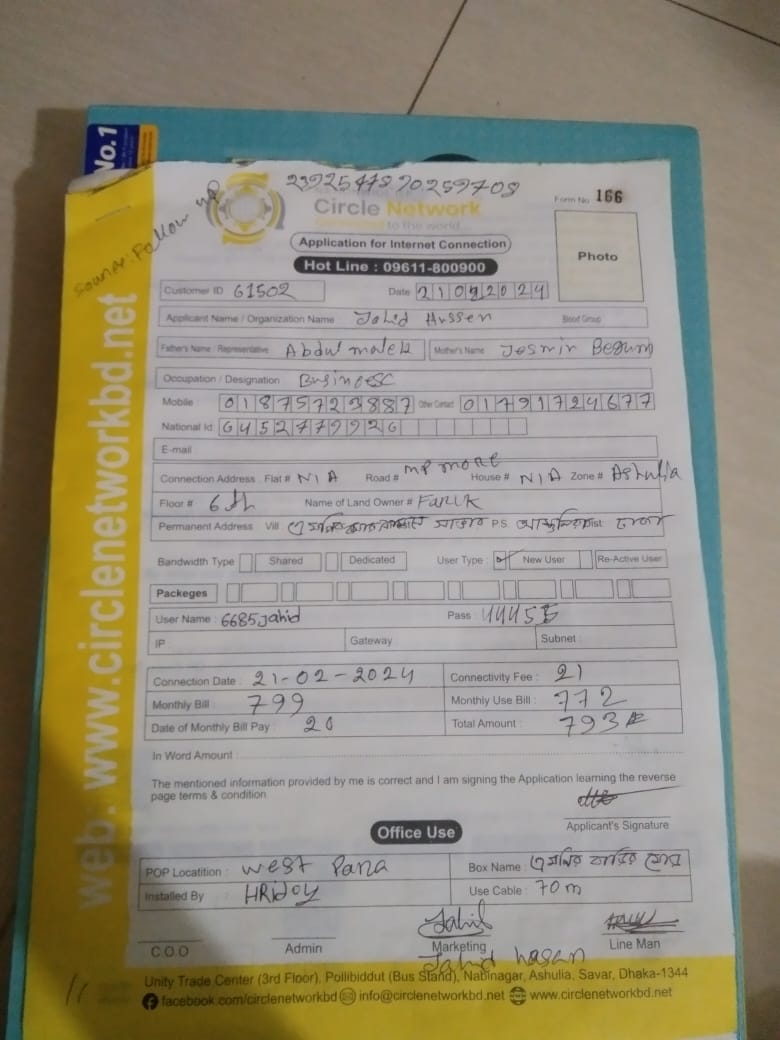 No.1
Source: Follow up
Circle Network
to the world...
Form No 166
Application for Internet Connection
Hot Line : 09611-800900
Photo
Customer ID 61502 Date 21092024
Applicant Name / Organization Name Jahid Hussen Blood Group
Father's Name / Representative Abdul malek Mother's Name Josmin Begum
Occupation / Designation Businessc
Mobile : 01875723887 Other Contact 01791724677
National Id 6452779926
E-mail
Connection Address : Flat # N/A Road # mp more House # N/A Zone # Ashulia
Floor # 6th Name of Land Owner # Faruk
Permanent Address Vill P.S Dist ঢাকা
Bandwidth Type Shared Dedicated User Type : New User Re-Active User
Packeges
User Name : 6685jahid Pass
IP : Gateway : Subnet :
Connection Date : 21-02-2024 Connectivity Fee : 21
Monthly Bill : 799 Monthly Use Bill : 772
Date of Monthly Bill Pay : 20 Total Amount : 793
In Word Amount :
The mentioned information provided by me is correct and I am signing the Application learning the reverse
page terms & condition
Applicant's Signature
Office Use
POP Locatition : west Para Box Name :
Installed By HRidoy Use Cable : 70m
C.O.O Admin Marketing Line Man
Jahid hasan
Unity Trade Center (3rd Floor), Pollibiddut (Bus Stand), Nabinagar, Ashulia, Savar, Dhaka-1344
facebook.com/circlenetworkbd info@circlenetworkbd.net www.circlenetworkbd.net
web. www.circlenetworkbd.net